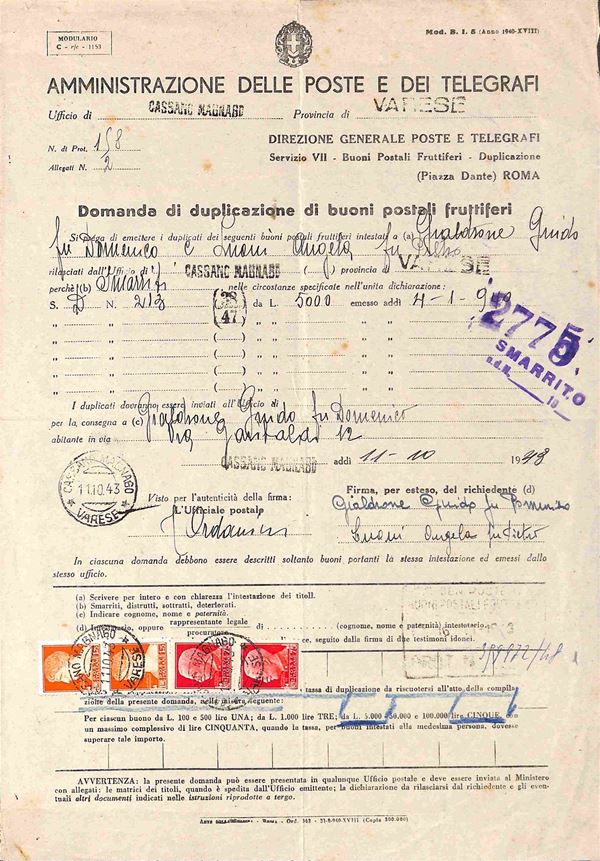 MODULARIO
C - r/e - 1153
Mod. B. I. 5 (Anno 1940-XVIII)
AMMINISTRAZIONE DELLE POSTE E DEI TELEGRAFI
Ufficio di CASSANO MAGNAGO Provincia di VARESE
N. di Prot. 158
Allegati N. 2
DIREZIONE GENERALE POSTE E TELEGRAFI
Servizio VII - Buoni Postali Fruttiferi - Duplicazione
(Piazza Dante) ROMA
Domanda di duplicazione di buoni postali fruttiferi
Si prega di emettere i duplicati dei seguenti buoni postali fruttiferi intestati a (a) Gialdrone Guido
fu Domenico e Angela fu Pietro
rilasciati dall'Ufficio di CASSANO MAGNAGO ( ) provincia di VARESE
perchè (b) Smarriti nelle circostanze specificate nell'unita dichiarazione:
S. D N. 213 (28/47) da L. 5000 emesso addì 4-1-9
" " " ( ) " " " "
" " " ( ) " " " "
" " " ( ) " " " "
" " " ( ) " " " "
" " " ( ) " " " "
2775
SMARRITO
I duplicati dovranno essere inviati all'Ufficio di
per la consegna a (c) Gialdrone Guido fu Domenico
abitante in via Via Garibaldi 12
CASSANO MAGNAGO addì 11-10 1943
CASSANO MAGNAGO
11.10.43
* VARESE *
Visto per l'autenticità della firma:
L'Ufficiale postale
Firma, per esteso, del richiedente (d)
Gialdrone Guido fu Domenico
Angela fu Pietro
In ciascuna domanda debbono essere descritti soltanto buoni portanti la stessa intestazione ed emessi dallo
stesso ufficio.
(a) Scrivere per intero e con chiarezza l'intestazione dei titoli.
(b) Smarriti, distrutti, sottratti, deteriorati.
(c) Indicare cognome, nome e paternità.
(d) In proprio, oppure rappresentante legale di (cognome, nome e paternità) intestatario.
procuratore
ce, seguito dalla firma di due testimoni idonei.
tassa di duplicazione da riscuotersi all'atto della compila-
zione della presente domanda, nella misura seguente:
Per ciascun buono da L. 100 e 500 lire UNA; da L. 1.000 lire TRE; da L. 5.000 - 50.000 e 100.000 lire CINQUE, con
un massimo complessivo di lire CINQUANTA, quando la tassa, per buoni intestati alla medesima persona, dovesse
superare tale importo.
AVVERTENZA: la presente domanda può essere presentata in qualunque Ufficio postale e deve essere inviata al Ministero
con allegati: le matrici dei titoli, quando è spedita dall'Ufficio emittente; la dichiarazione da rilasciarsi dal richiedente e gli even-
tuali altri documenti indicati nelle istruzioni riprodotte a tergo.